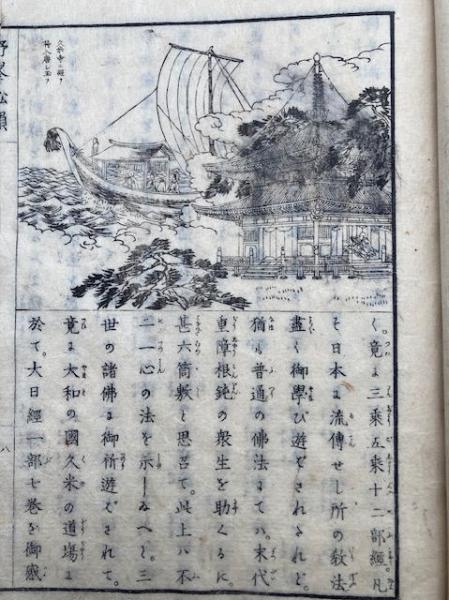 久米寺に経を
得入唐し玉ふ
野峯松韻
八
く。竟に三乗五乗十二部經。凡
そ日本に流傳せし所の教法
盡く御學び遊ばされぬれど。
猶も普通の佛法にてハ。末代
重障根鈍の衆生を助くるに。
甚六箇敷と思召て。此上ハ不
二一心の法を示しぬへと。三
世の諸佛に御祈遊ばされて。
竟に大和の國久米の道場に
於て。大日經一部七巻を御感